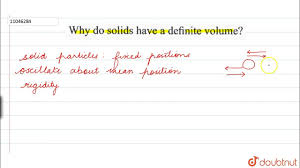 Why do solids have a definite volume?
solid particles : fixed positions
oscillate about mean position
rigidity
doubtnut